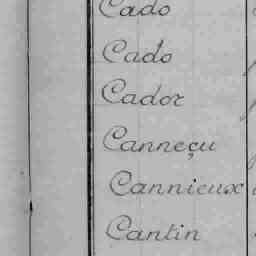 Cado
Cado
Cador
Canneçu
Cannieux
Cantin